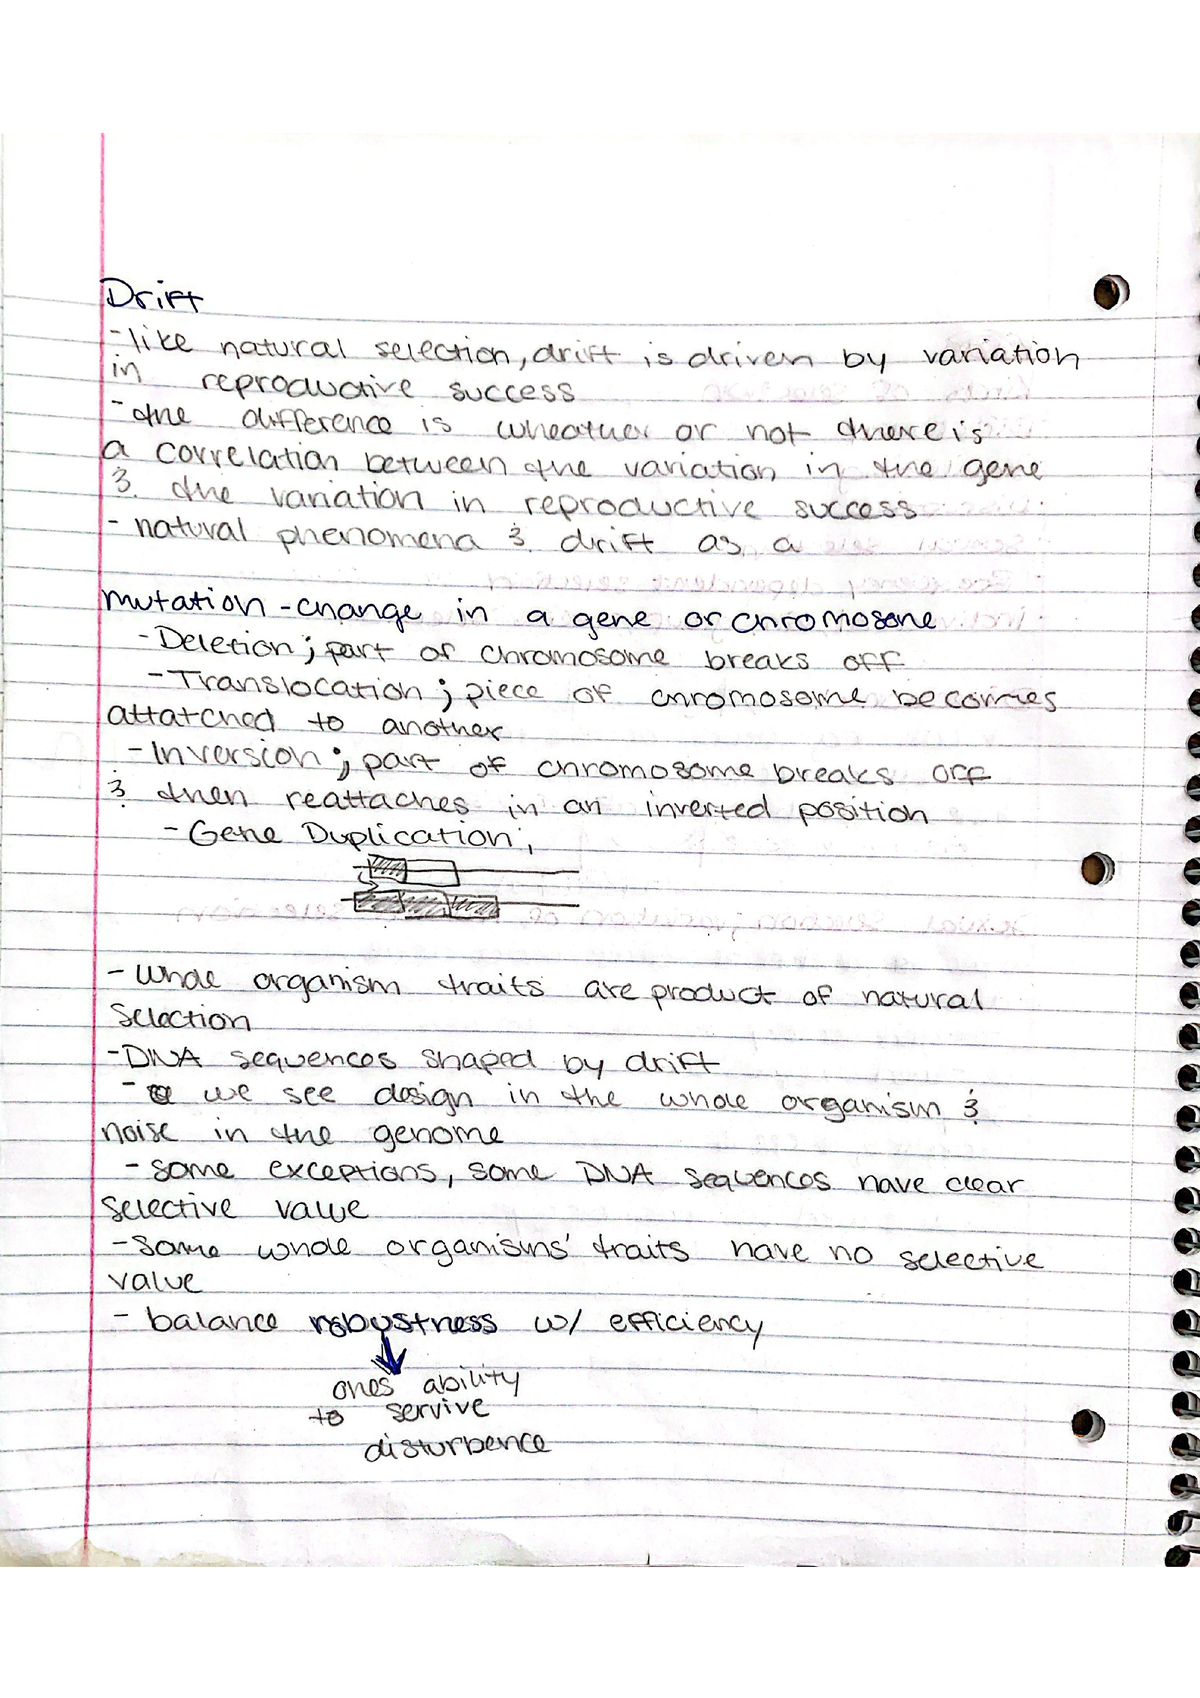 Drift
-like natural selection, drift is driven by variation
in reproductive success
-the difference is wheather or not there is
a correlation between the variation in the gene
& the variation in reproductive success
- natural phenomena & drift as a
mutation - change in a gene or chromosome
- Deletion; part of chromosome breaks off
- Translocation; piece of chromosome becomes
attatched to another
- Inversion; part of chromosome breaks off
& then reattaches in an inverted position
- Gene Duplication;
- whole organism traits are product of natural
Selection
-DNA sequences shaped by drift
- we see design in the whole organism &
noise in the genome
- some exceptions, some DNA sequences have clear
selective value
-some whole organisms' traits have no selective
value
- balance robustness w/ efficiency
ones ability
to servive
disturbence